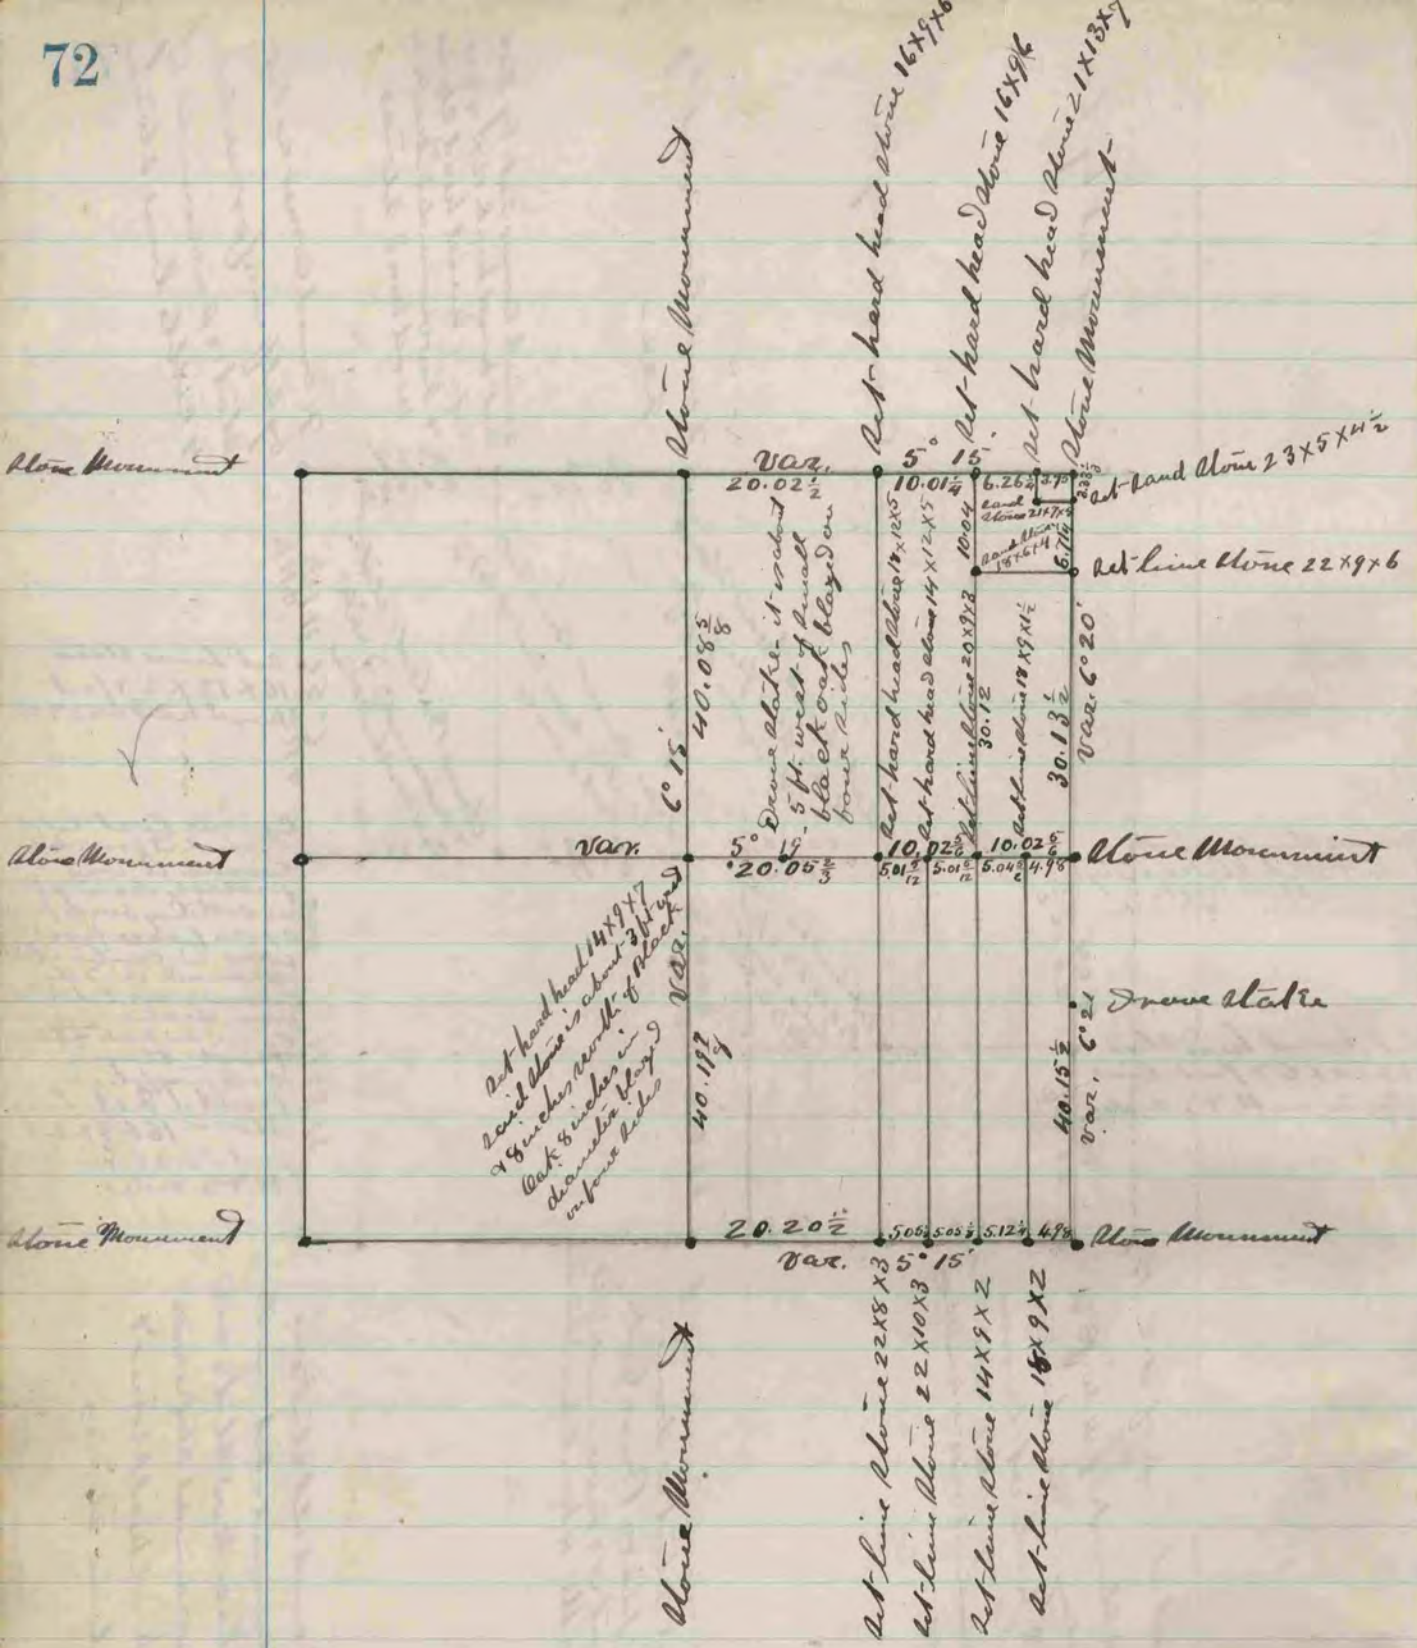 72
Stone Monument
Set hard head stone 16x9x6
Set hard head stone 16x9x6
Set hard head stone 21x13x7
Stone Monument
Stone Monument
Var. 5° 15'
20.02 1/2
10.01 1/4
6.26 1/4
3.75
Set Sand Stone 23x5x4 1/2
Sand
Stone 21x7x5
10.04
Sand Stone
18x6x4
6.71 1/4
Set lime Stone 22x9x6
40.08 5/8
6° 15'
Drove stake - it is about
5 ft. west of small
black oak blazed on
four sides
Set hard head stone 18x12x5
Set hard head stone 14x12x5
Set lime stone 20x9x3
30.12
Set lime stone 18x9x1 1/2
30.13 1/2
Var. 6° 20'
Stone Monument
Var. 5° 19
20.05 2/3
10.02 5/6
10.02 5/6
5.01 5/12
5.01 5/12
5.04 5/6
4.98
Stone Monument
Set hard head 14x9x7
said stone is about 3 ft and
8 inches north of Black
Oak 8 inches in
diameter blazed
on four sides
Var.
40.19
Drove Stake
40.15 1/2
Var. 6° 21
Stone Monument
20.20 1/2
5.05
5.05
5.12
4.98
Stone Monument
Var. 5° 15'
Stone Monument
Set lime stone 22x8x3
Set lime stone 22x10x3
Set lime stone 14x9x2
Set lime stone 18x9x2